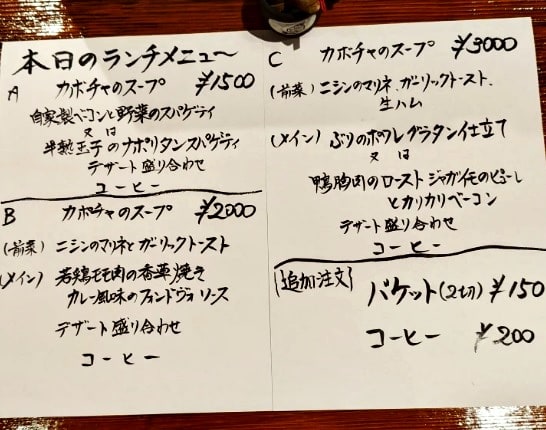 本日のランチメニュー
A カボチャのスープ ¥1500
自家製ベーコンと野菜のスパゲティ
又は
半熟玉子のナポリタンスパゲティ
デザート盛り合わせ
コーヒー
B カボチャのスープ ¥2000
(前菜) ニシンのマリネとガーリックトースト
(メイン) 若鶏モモ肉の香草焼き
カレー風味のフォンドヴォソース
デザート盛り合わせ
コーヒー
C カボチャのスープ ¥3000
(前菜) ニシンのマリネ、ガーリックトースト、
生ハム
(メイン) ぶりのポワレグラタン仕立て
又は
鴨胸肉のロースト ジャガイモのピューレ
とカリカリベーコン
デザート盛り合わせ
コーヒー
[追加注文] バケット(2切) ¥150
コーヒー ¥200